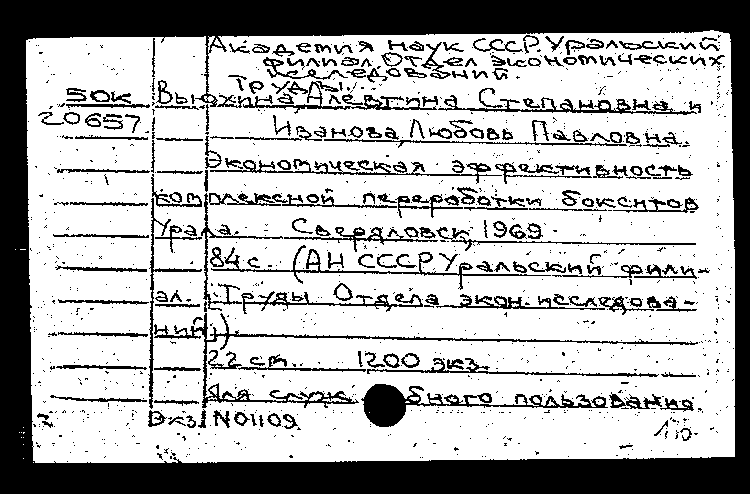 Академия наук СССР. Уральский
филиал. Отдел экономических
исследований.
Труды...
50к Вьюхина, Алевтина Степановна и
20657 Иванова, Любовь Павловна.
Экономическая эффективность
комплексной переработки бокситов
Урала. Свердловск, 1969.
84 с. (АН СССР. Уральский фили-
ал. [Труды Отдела экон. исследова-
ний]).
22 см. 1200 экз.
Для служебного пользования.
Экз. №01109